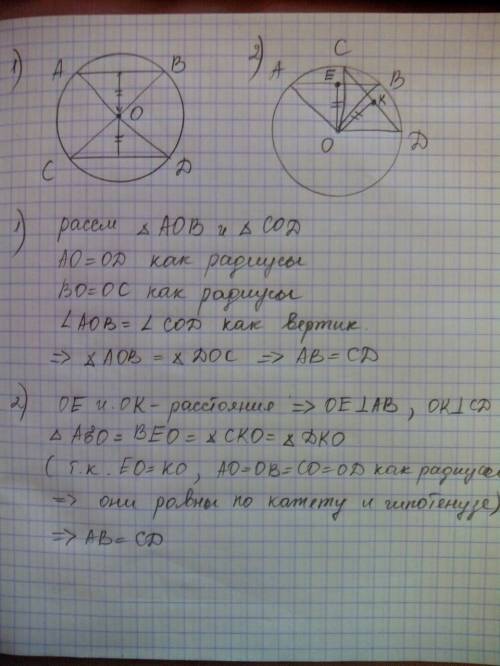 1) A B O C D
2) A E C B K O D
1) рассм △ AOB и △ COD
AO = OD как радиусы
BO = OC как радиусы
∠AOB = ∠COD как вертик.
=> △ AOB = △ DOC => AB = CD
2) OE и OK – расстояния => OE⊥AB, OK⊥CD
△ AEO = BEO = △ CKO = △ DKO
( т.к. EO = KO, AO = OB = CO = OD как радиусы
=> они равны по катету и гипотенузе)
=> AB = CD